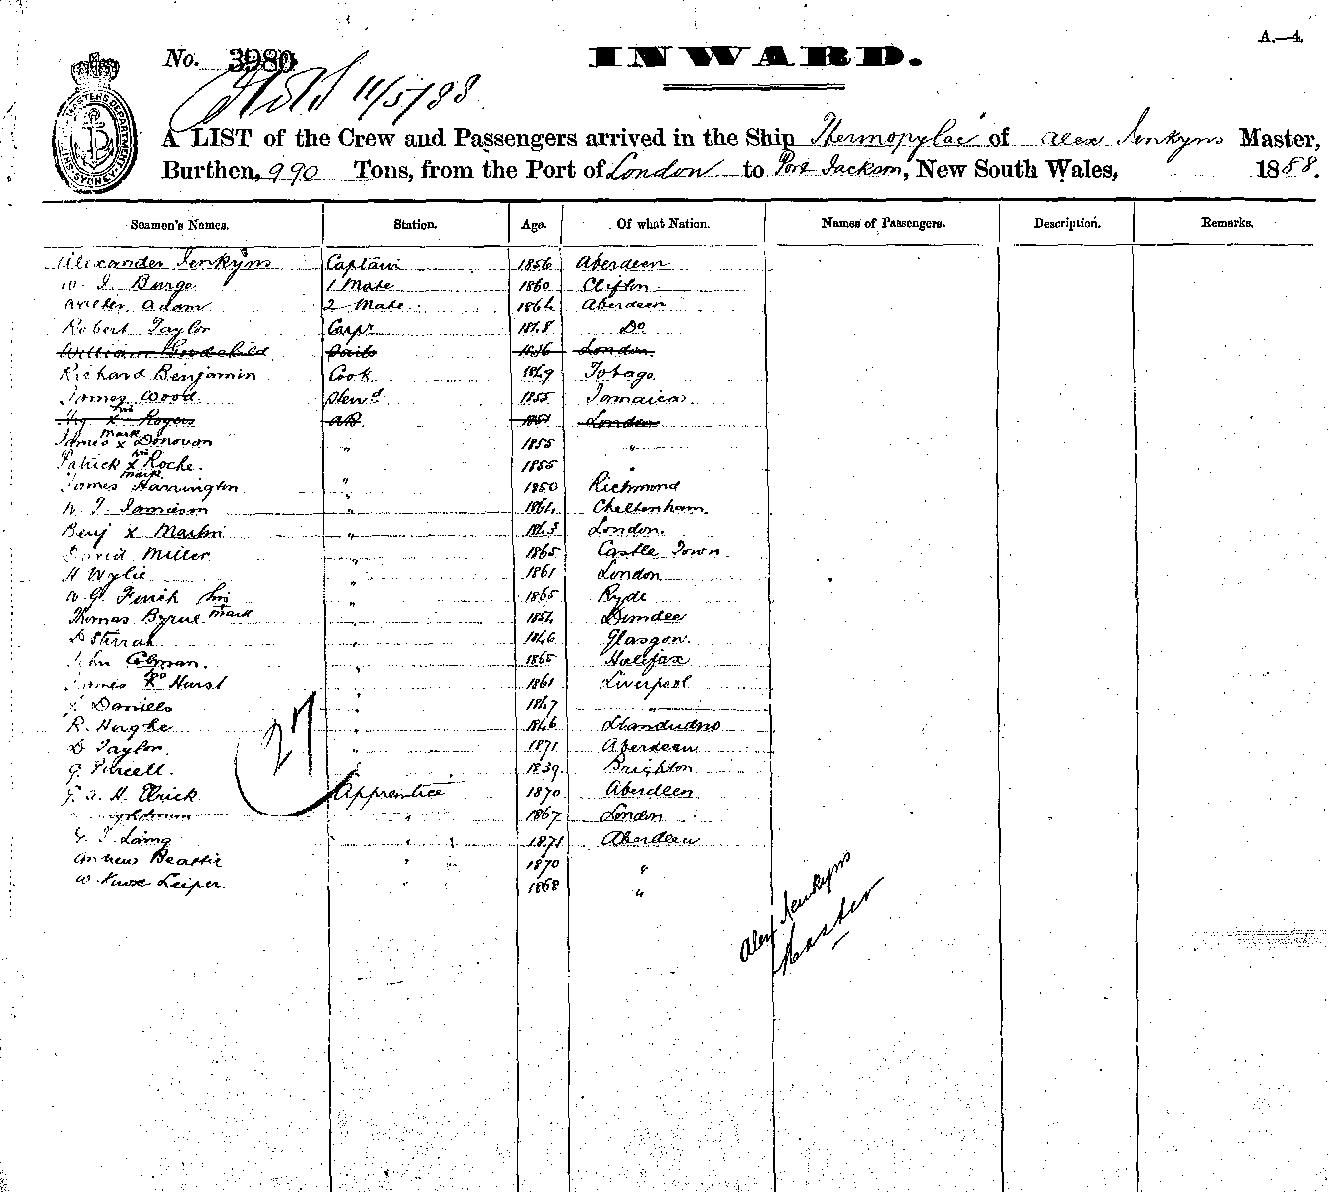 A.—4.
No. 3980 INWARD.
11/5/88
A LIST of the Crew and Passengers arrived in the Ship Thermopylae of Alex Jenkyns Master,
Burthen, 990 Tons, from the Port of London to Port Jackson, New South Wales, 1888.
Seamen's Names. Station. Age. Of what Nation. Names of Passengers. Description. Remarks.
Alexander Jenkyns Captain 1856 Aberdeen
W. J. Barge 1 Mate 1860 Clifton
Arther Adam 2 Mate 1864 Aberdeen
Robert Taylor Carpr Do
William Goodchild Sails 1836 London
Richard Benjamin Cook 1849 Tobago
James Wood Stewd 1855 Jamaica
Hy his x Rogers AB London
James mark x Donovan " 1855 "
Patrick his x Roche. 1855 "
James mark Harrington " 1850 Richmond
W. J. Jamieson " 1864 Cheltenham
Benj x Martin " 1863 London
David Miller " 1865 Castle Town
H Wylie " 1861 London
W. G. Finch his " 1865 Ryde
Thomas Byrne mark " 1854 Dundee
D Sturrah " 1846 Glasgow
John Colman. " 1865 Halifax
James x Hurst " 1861 Liverpool
J. Daniells " 1847 "
R. Hughe " 1846 Llandudno
D Taylor. " 1871 Aberdeen
G. Purcell. " 1839 Brighton
27
G. A. H. Elrick Apprentice 1870 Aberdeen
" 1867 London
G. J. Laing " 1871 Aberdeen
Andrew Beattie " 1870 "
W. Knox Leiper. " 1868 "
Alex Jenkyns
Master